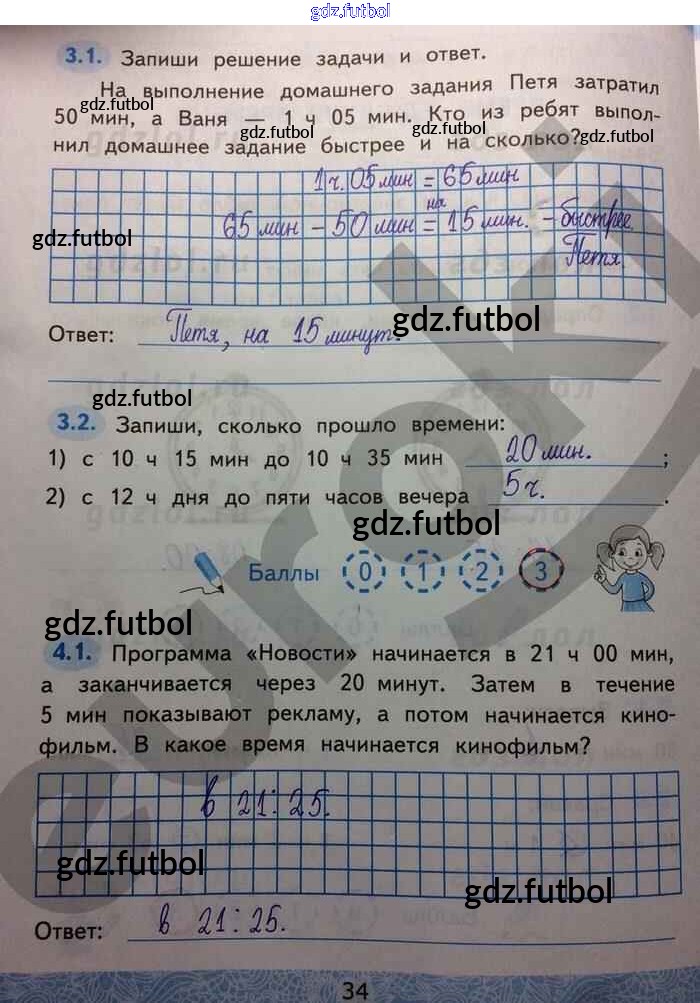 gdz.futbol
3.1. Запиши решение задачи и ответ.
На выполнение домашнего задания Петя затратил
gdz.futbol
50 мин, а Ваня — 1 ч 05 мин. Кто из ребят выпол-
gdz.futbol
gdz.futbol
нил домашнее задание быстрее и на сколько?
1 ч. 05 мин = 65 мин
на
65 мин - 50 мин = 15 мин. - быстрее
gdz.futbol
Петя
gdz.futbol
Ответ: Петя, на 15 минут.
gdz.futbol
3.2. Запиши, сколько прошло времени:
1) с 10 ч 15 мин до 10 ч 35 мин 20 мин. ;
2) с 12 ч дня до пяти часов вечера 5 ч. .
gdz.futbol
Баллы 0 1 2 3
gdz.futbol
4.1. Программа «Новости» начинается в 21 ч 00 мин,
а заканчивается через 20 минут. Затем в течение
5 мин показывают рекламу, а потом начинается кино-
фильм. В какое время начинается кинофильм?
в 21:25.
gdz.futbol
gdz.futbol
Ответ: в 21:25.
34
euroki